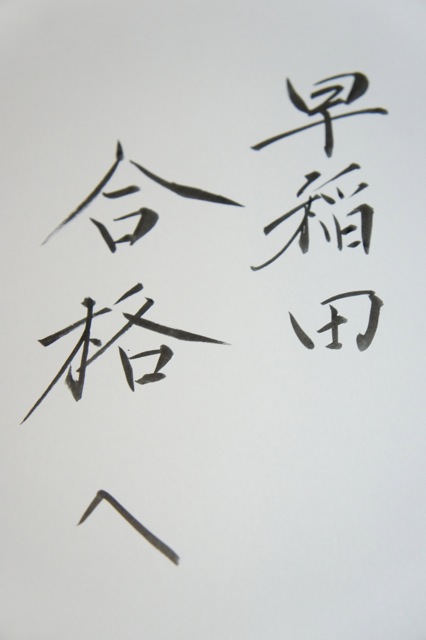 早稲田
合格へ